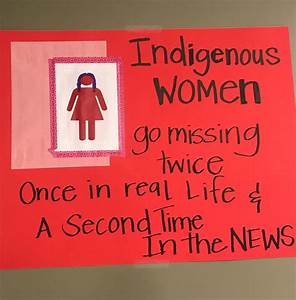 Indigenous
WOMEN
go missing
twice
Once in real Life &
A Second Time
In the NEWS